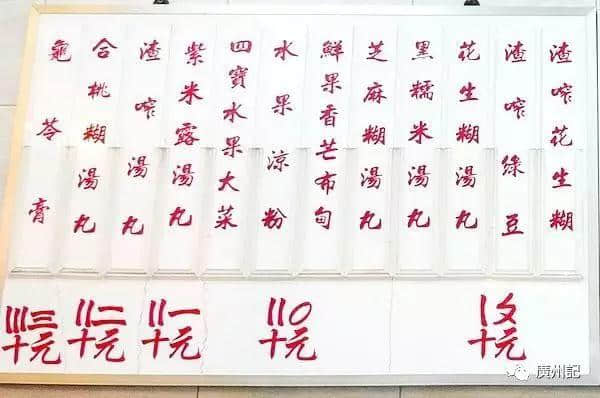 渣咋花生糊
渣咋綠豆
花生糊湯丸
黑糯米湯丸
芝麻糊湯丸
鮮果香芒布甸
水果涼粉
四寶水果大菜
紫米露湯丸
渣咋湯丸
合桃糊湯丸
龜苓膏
〡〩
十元
〢〇
十元
〢一
十元
〢二
十元
〣三
十元
廣州記